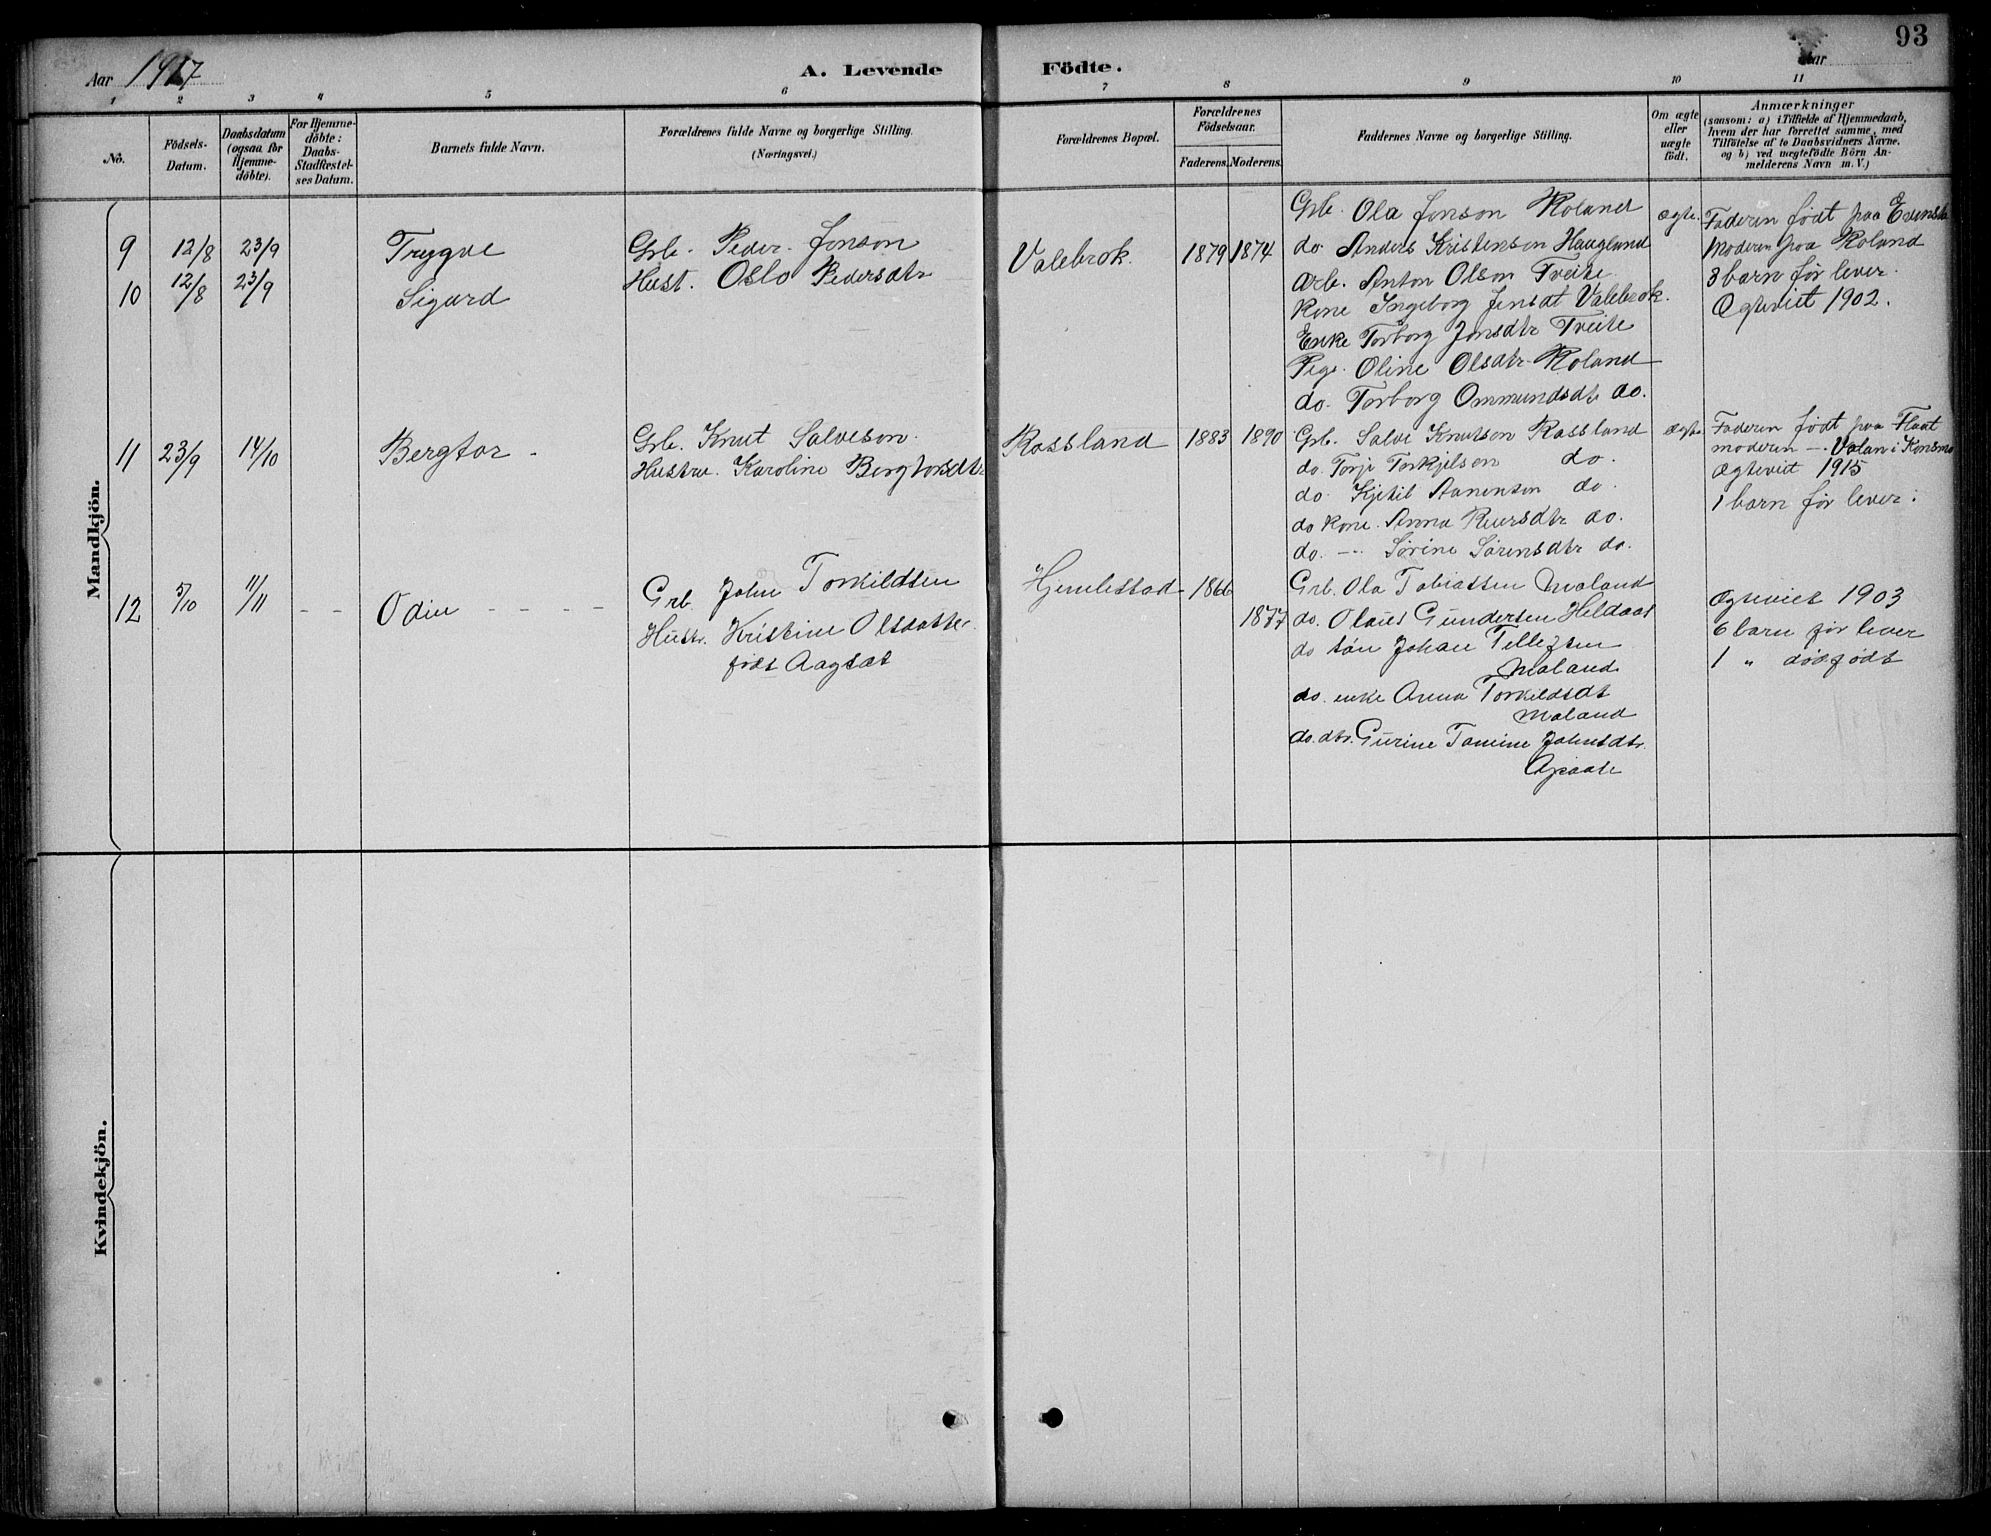 93
Aar 1917
A. Levende Födte.
Aar
1 2 3 4 5 6 7 8 9 10 11
No.
Födsels-
Datum.
Daabsdatum
(ogsaa for
Hjemme-
döbte).
For Hjemme-
döbte:
Daabs-
Stadfæstel-
ses Datum.
Barnets fulde Navn.
Forældrenes fulde Navne og borgerlige Stilling.
(Næringsvei.)
Forældrenes Bopæl.
Forældrenes
Födselsaar.
Faderens. Moderens.
Faddernes Navne og borgerlige Stilling.
Om ægte
eller
uægte
födt.
Anmærkninger
(saasom: a) i Tilfælde af Hjemmedaab,
hvem der har forrettet samme, med
Tilföielse af to Daabsvidners Navne.
og b) ved uægtefödte Börn An-
melderens Navn m. V.)
Mandkjön.
9 12/8 23/9 Trygve
10 12/8 23/9 Sigurd
Grb. Peder Jonson
Hust. Oslo Pedersdtr
Valebrok. 1879 1874
Grb. Ola Jonson Roland
do. Anders Kristenson Haugland
Arb. Anton Olson Tveite
Kone Ingeborg Jensdt Valebrok.
Enke Torborg Jonsdtr Tveite
Pige. Oline Olsdtr Roland
do. Torborg Ommundsdt do.
ægte.
Faderen født paa
Moderen paa Roland
3 barn før lever.
Ægteviet 1902.
11 23/9 14/10 Bergtor -
Grb. Knut Salveson.
Hustru. Karoline Bergtorsdtr
Rossland 1883 1890
Grb. Salve Knutson Rossland
do. Torje Torkjelson do.
do. Kjetil Aanenson do.
do Kone. Anna Reiersdtr do.
do. -"- Sørine Sørensdtr do.
ægte
Faderen født paa Flaat
moderen -"- Valan i Konsmo
Ægteviet 1915
1 barn før lever.
12 5/10 11/11 - - Odin - - - -
Grb. John Torkildsen
Hustr. Kristine Olsdatter
født Aagsæt
Hjemlestad 1866
1877
Grb. Ola Tobiassen Moland
do. Olaus Gundersen Heldaas
do søn Johan Tellefsen
Moland
do. enke Anna Torkildsdt
Moland
do. dtr. Gurine Tomine Johnsdtr.
Ægteviet 1903
6 barn før lever
1 " dødfødt
Kvindekjön.